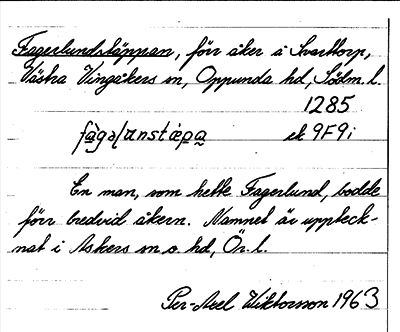 Fagerlundstäppan, förr åker i Svarttorp,
Västra Vingåkers sn, Oppunda hd, Södm. l.
1285
ek 9F9i
En man, som hette Fagerlund, bodde
förr bredvid åkern. Namnet är uppteck-
nat i Askers sn o. hd, Ör. l.
Per-Axel Wiktorsson 1963